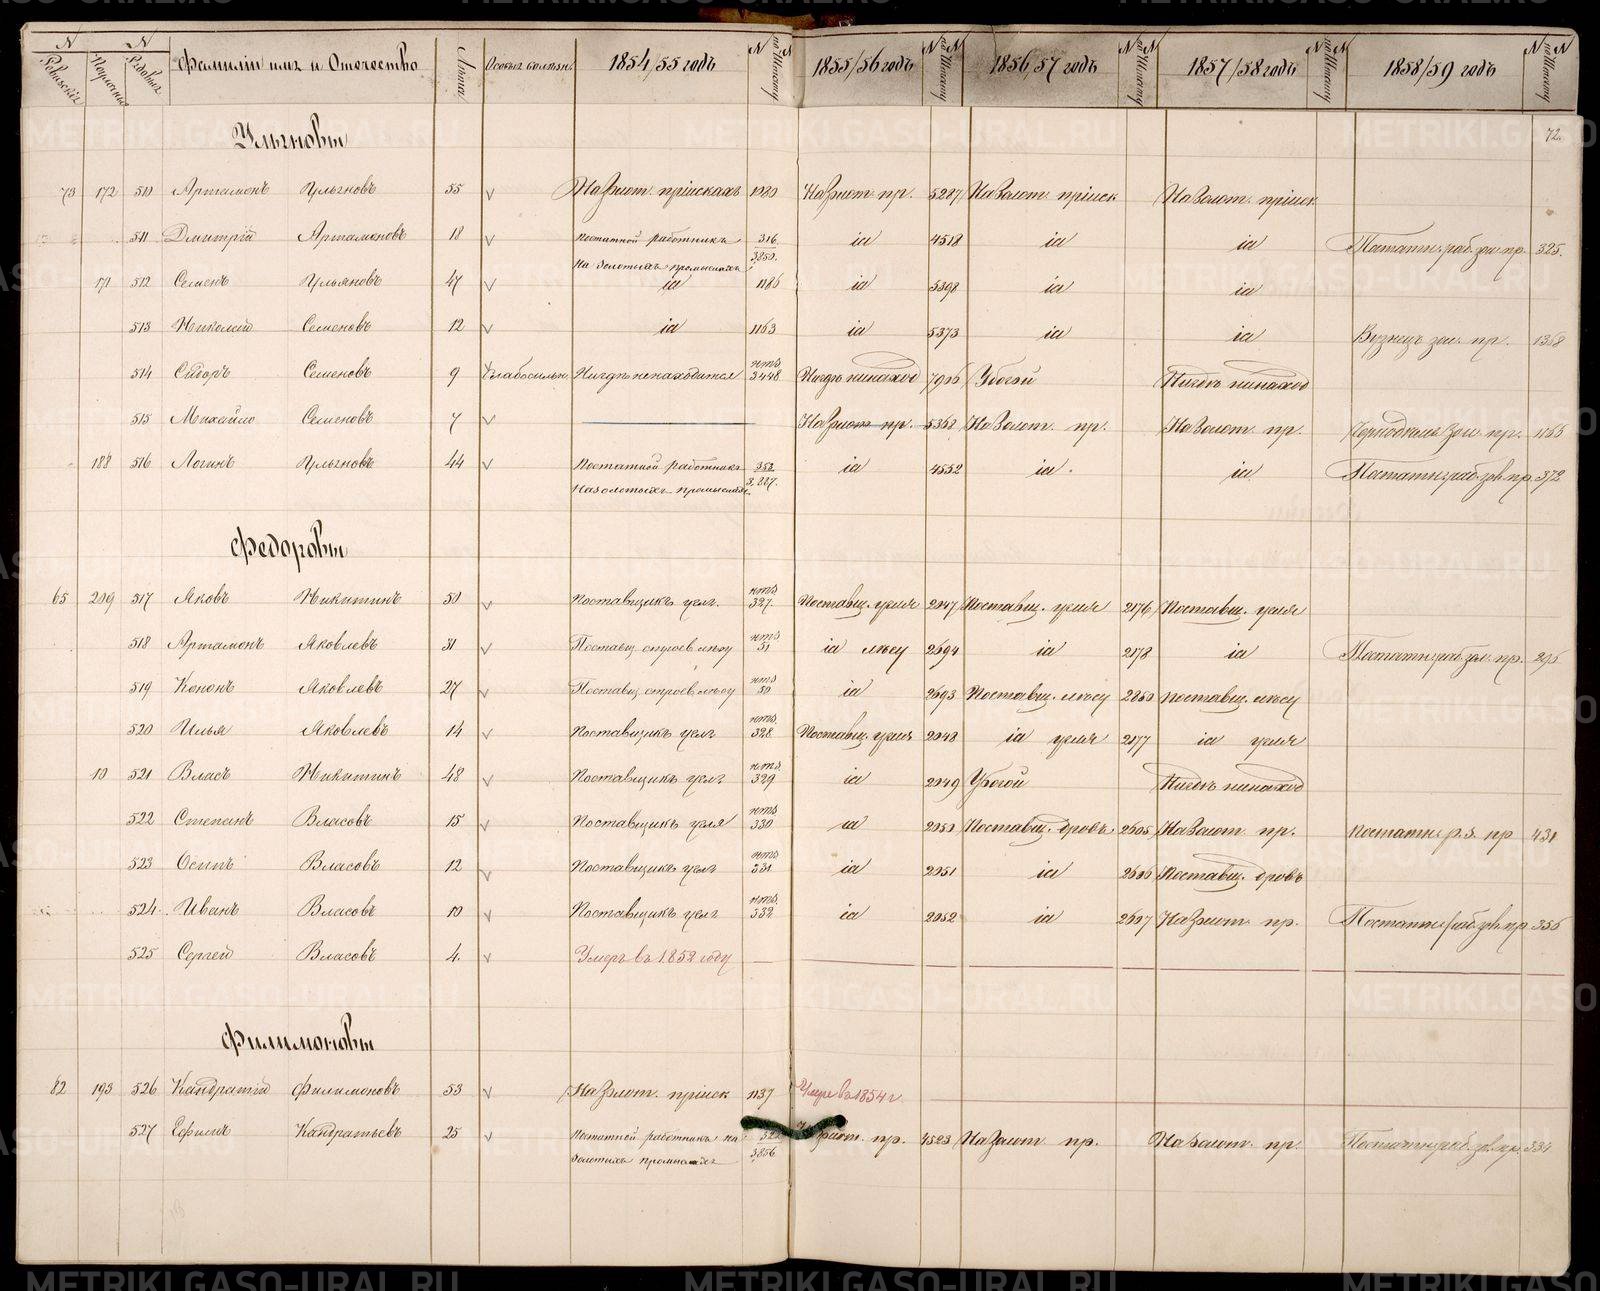 N N
Ревизскія Поулочныя Рядовыя Фамиліи имя и Отечество Лѣта Особыя болѣзни 1854/55 годъ N по Штату N 1855/56 годъ N по Штату N 1856/57 годъ N по Штату N 1857/58 годъ N по Штату N 1858/59 годъ N по Штату N
72.
Ульяновы
73 172 510 Артамонъ Ульяновъ 55 v На золот. пріискахъ 1080 На золот. пр. 5287 На Золот. пріиск На Золот. пріиск
511 Дмитрій Артамоновъ 18 v постатной работникъ 316 іа 4518 іа іа Постатн. раб. зол. пр. 325.
на золотыхъ промыслахъ 3850.
171 512 Семенъ Ульяновъ 47 v іа 1186 іа 5398 іа іа
513 Николай Семеновъ 12 v іа 1163 іа 5373 іа іа Кузнецъ зол. пр. 1368
514 Сидоръ Семеновъ 9 Слабосильн. Нигдѣ ненаходится 3448 Нигдѣ ненаход 7906 Убогой Нигдѣ ненаход
515 Михайло Семеновъ 7 v На золот. пр. 5362 На Золот. пр. На Золот. пр. 1155
188 516 Логинъ Ульяновъ 44 v Постатной работникъ 353 іа 4552 іа. іа Постатн. раб. зол. пр. 372
На золотыхъ промыслахъ 3,887.
Федоровы
65 209 517 Яковъ Никитинъ 50 v Поставщикъ угля. 327. Поставщ. угля 2047 Поставщ. угля 2176 Поставщ. угля
518 Артамонъ Яковлевъ 31 v Поставщ строев лѣсу 51 іа лѣсу 2694 іа 2178 іа Постатн. раб зол. пр. 295
519 Кононъ Яковлевъ 27 v Поставщ строев лѣсу 50 іа 2693 Поставщ. лѣсу 2850 поставщ. лѣсу
520 Илья Яковлевъ 14 v Поставщикъ угля 328 Поставщ. угля 2048 іа угля 2177 іа угля
10 521 Власъ Никитинъ 48 v Поставщикъ угля 329 іа 2049 Убогой Нигдѣ ненаход
522 Степанъ Власовъ 15 v Поставщикъ угля 330 іа 2050 Поставщ. дровъ 2605 На Золот. пр. постатн. р. з. пр 431
523 Осипъ Власовъ 12 v Поставщикъ угля 331 іа 2051 іа 2606 Поставщ. дровъ
524. Иванъ Власовъ 10 v Поставщикъ угля 332 іа 2052 іа 2607 На золот. пр. Постатн. раб. зол. пр. 355
525 Сергей Власовъ 4. v Умеръ въ 1852 году
Филимоновы
82 193 526 Кандратій Филимоновъ 53 v На золот. пріиск 1137 Умре въ 1854 г.
527 Ефимъ Кандратьевъ 25 v Постатной работникъ на золот. пр. 4523 На золот пр. На золот. пр. Постатн. раб. зол. пр. 334
золотыхъ промыслахъ 3856
METRIKI.GASO-URAL.RU